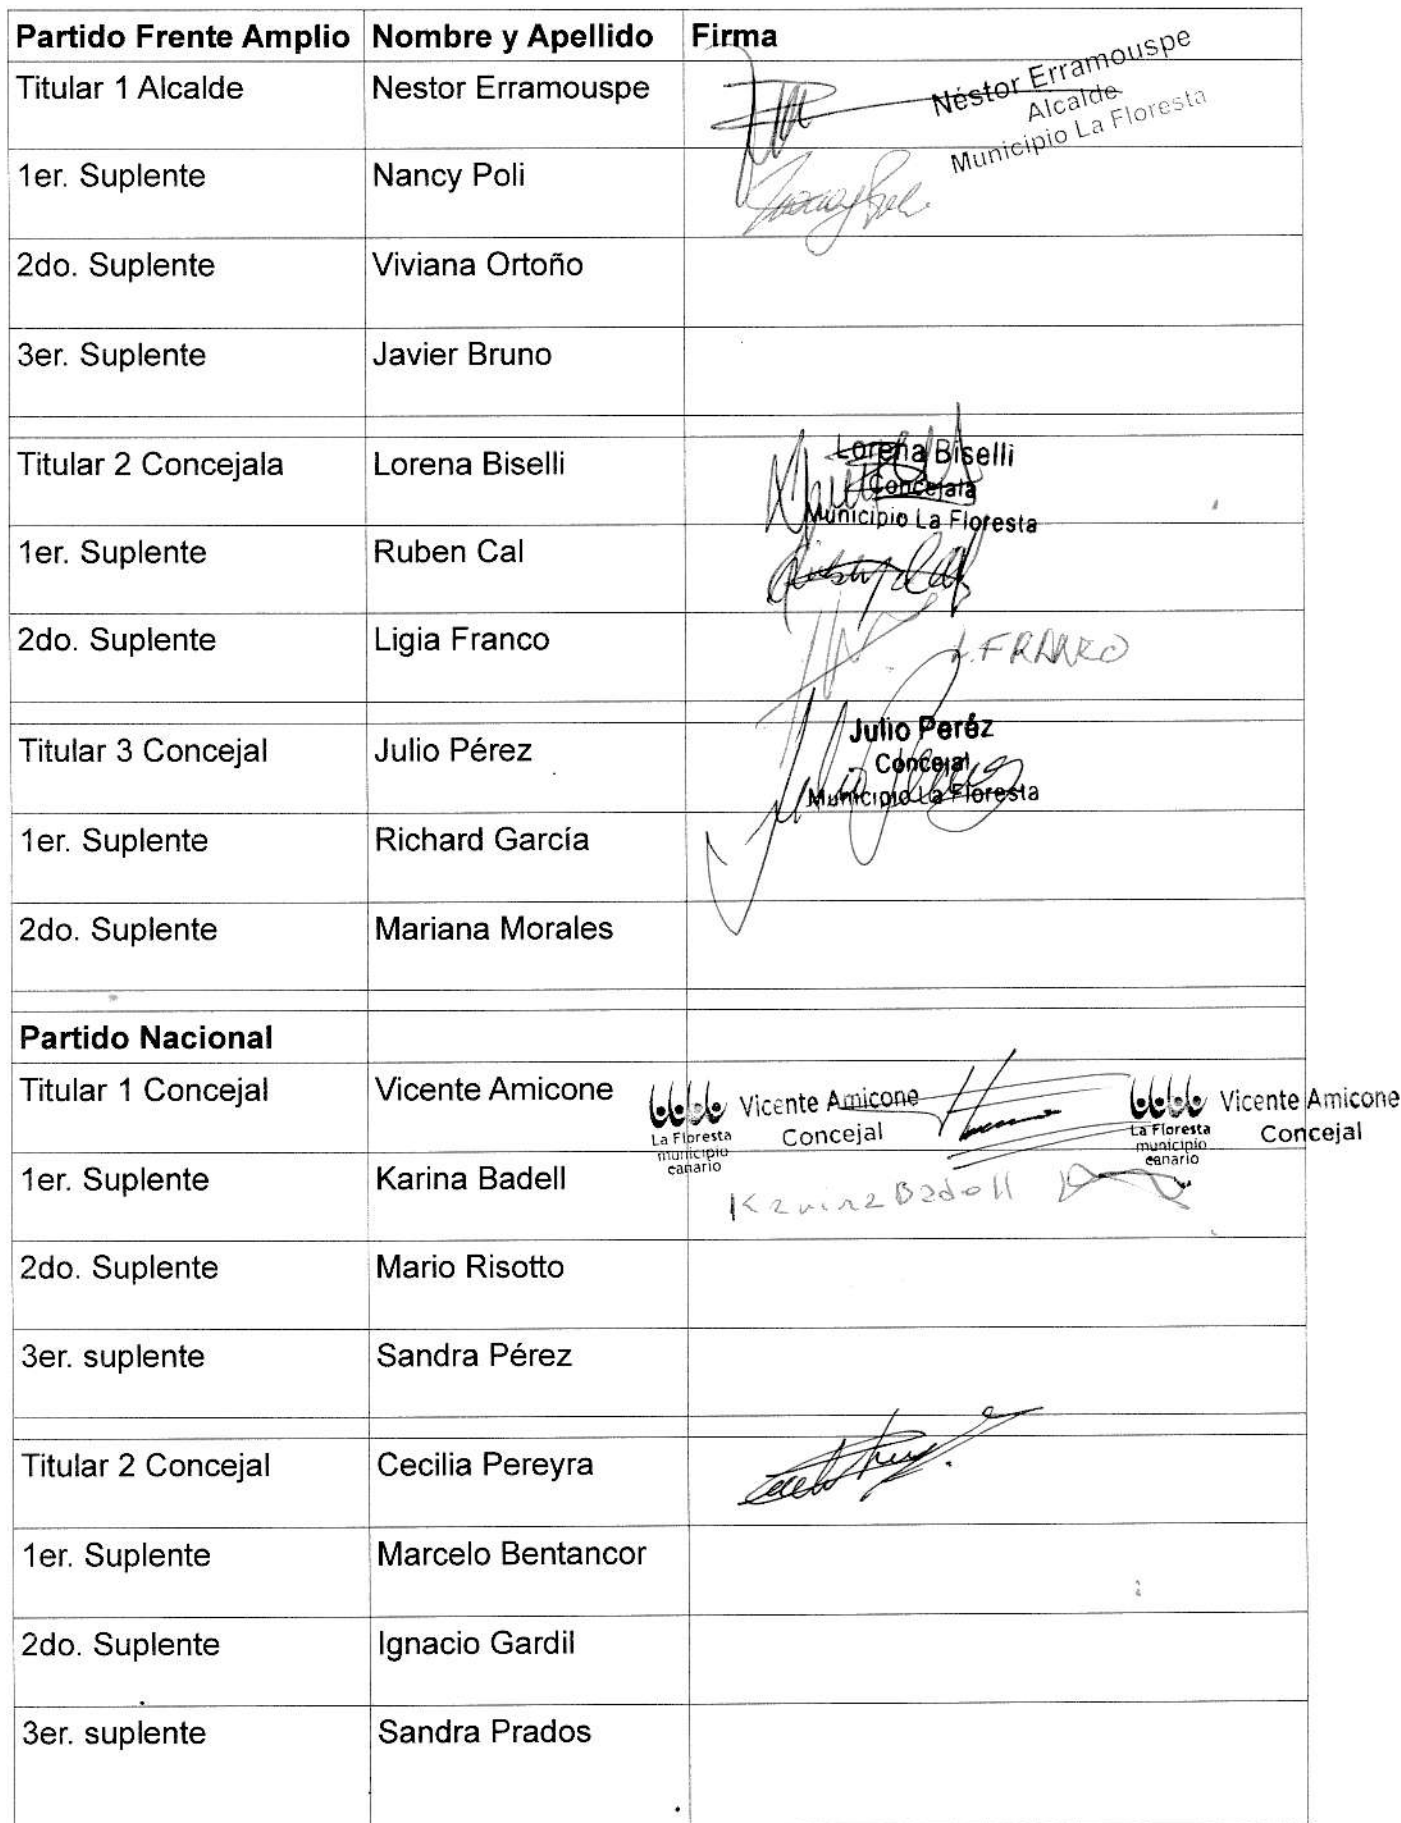 Partido Frente Amplio Nombre y Apellido Firma
Titular 1 Alcalde Nestor Erramouspe
Néstor Erramouspe
Alcalde
Municipio La Floresta
1er. Suplente Nancy Poli
2do. Suplente Viviana Ortoño
3er. Suplente Javier Bruno
Titular 2 Concejala Lorena Biselli
Lorena Biselli
Concejala
Municipio La Floresta
1er. Suplente Ruben Cal
2do. Suplente Ligia Franco L. FRANCO
Titular 3 Concejal Julio Pérez
Julio Peréz
Concejal
Municipio La Floresta
1er. Suplente Richard García
2do. Suplente Mariana Morales
Partido Nacional
Titular 1 Concejal Vicente Amicone
Vicente Amicone
Concejal
La Floresta
municipio
canario
Vicente Amicone
Concejal
La Floresta
municipio
canario
1er. Suplente Karina Badell Karina Badell
2do. Suplente Mario Risotto
3er. suplente Sandra Pérez
Titular 2 Concejal Cecilia Pereyra
1er. Suplente Marcelo Bentancor
2do. Suplente Ignacio Gardil
3er. suplente Sandra Prados